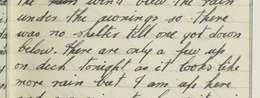 the rain wind blew the rain
under the awnings so there
was no shelter till one got down
below. There are only a few up
on deck tonight as it looks like
more rain but I am up here